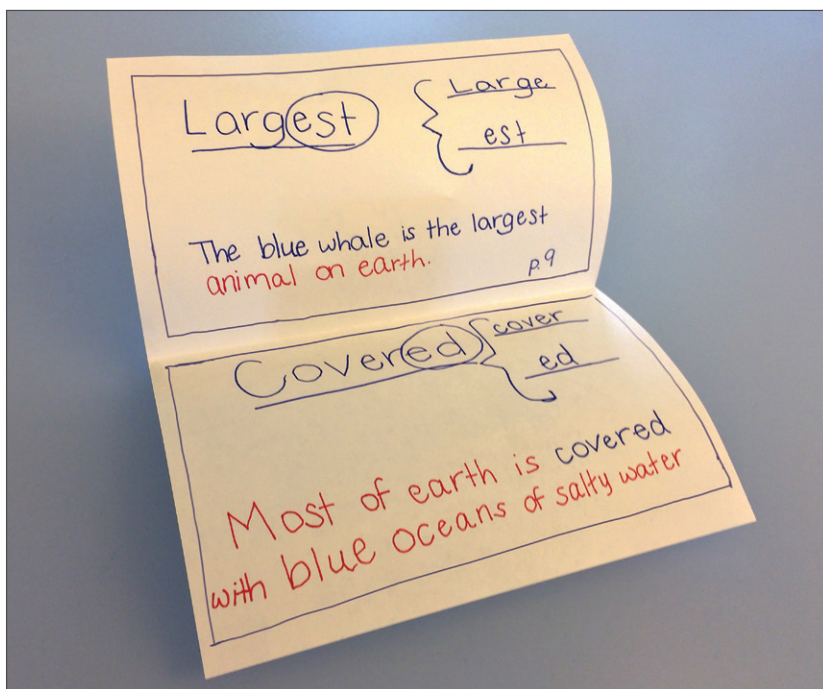 Largest
Large
est
The blue whale is the largest
animal on earth.
p.9
Covered
cover
ed
Most of earth is covered
with blue oceans of salty water